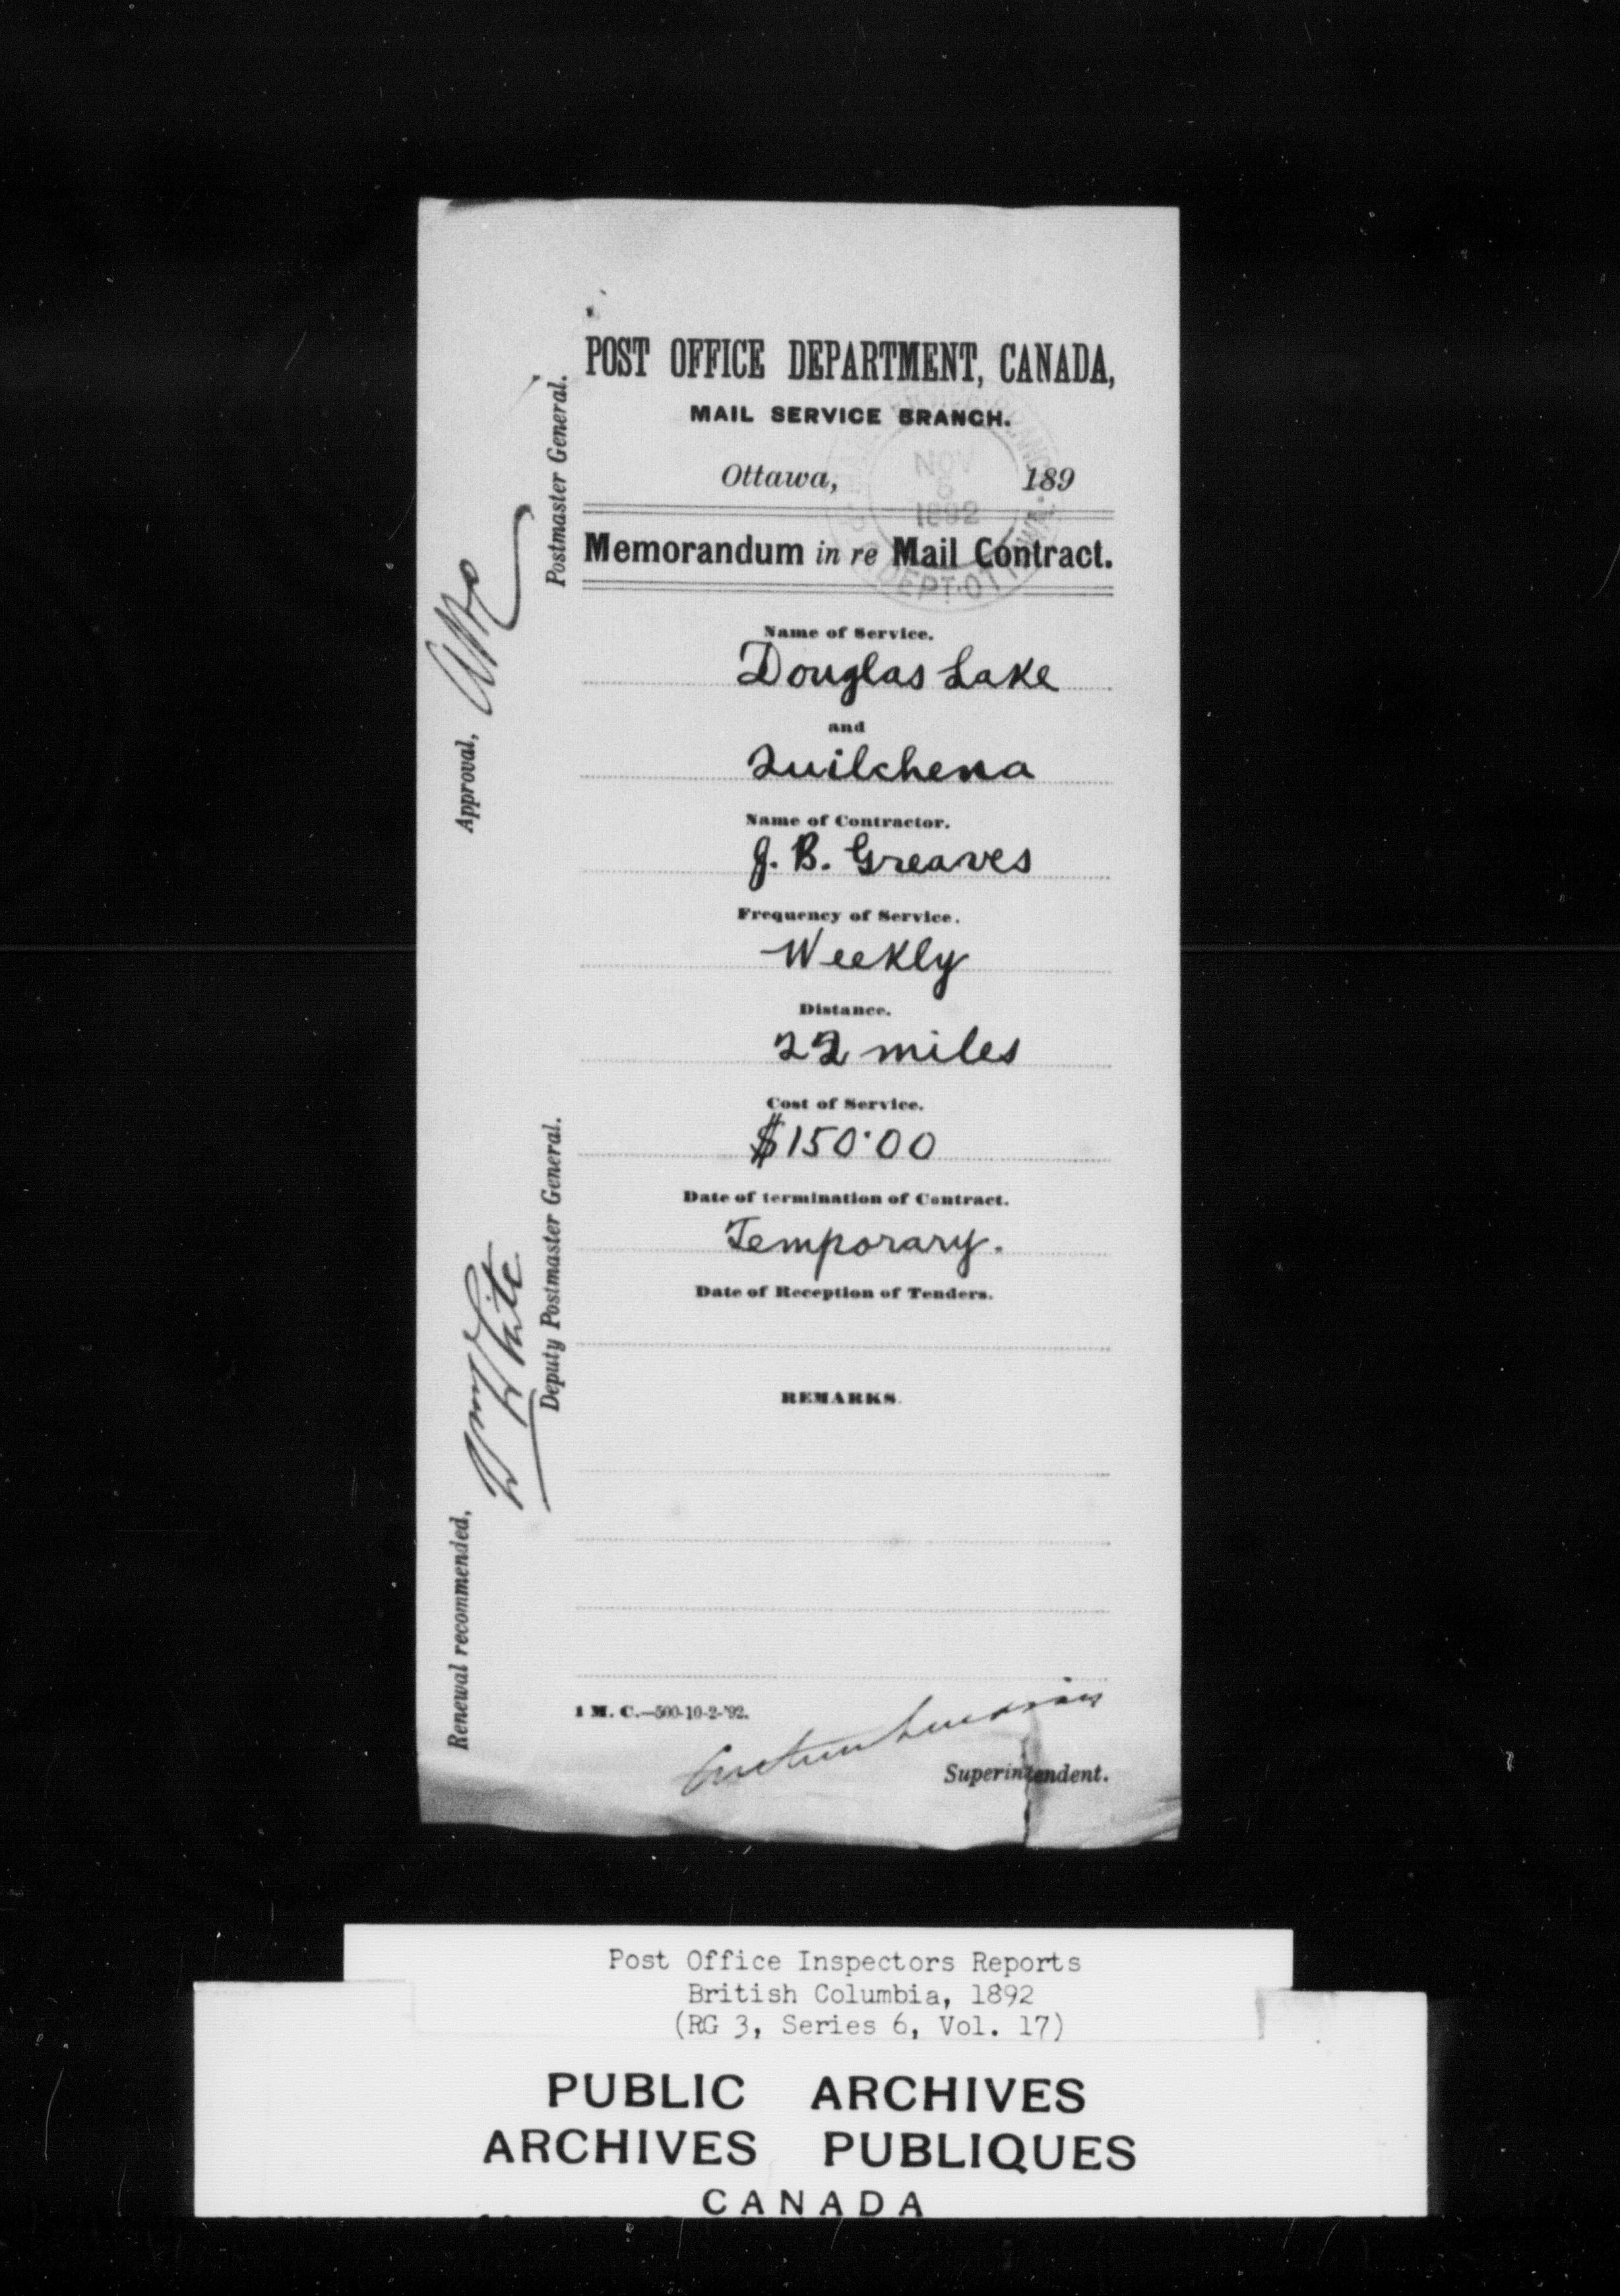 POST OFFICE DEPARTMENT, CANADA,
MAIL SERVICE BRANCH.
Ottawa, 189
NOV
1892
DEPT. OTTAWA.
Memorandum in re Mail Contract.
Name of Service.
Douglas Lake
and
Quilchena
Name of Contractor.
J. B. Greaves
Frequency of Service.
Weekly
Distance.
22 miles
Cost of Service.
$150.00
Date of termination of Contract.
Temporary.
Date of Reception of Tenders.
REMARKS.
1 M. C.—500-10-2-'92.
Superintendent.
Approval,
Postmaster General.
Renewal recommended,
White
Deputy Postmaster General.
Post Office Inspectors Reports
British Columbia, 1892
(RG 3, Series 6, Vol. 17)
PUBLIC ARCHIVES
ARCHIVES PUBLIQUES
CANADA